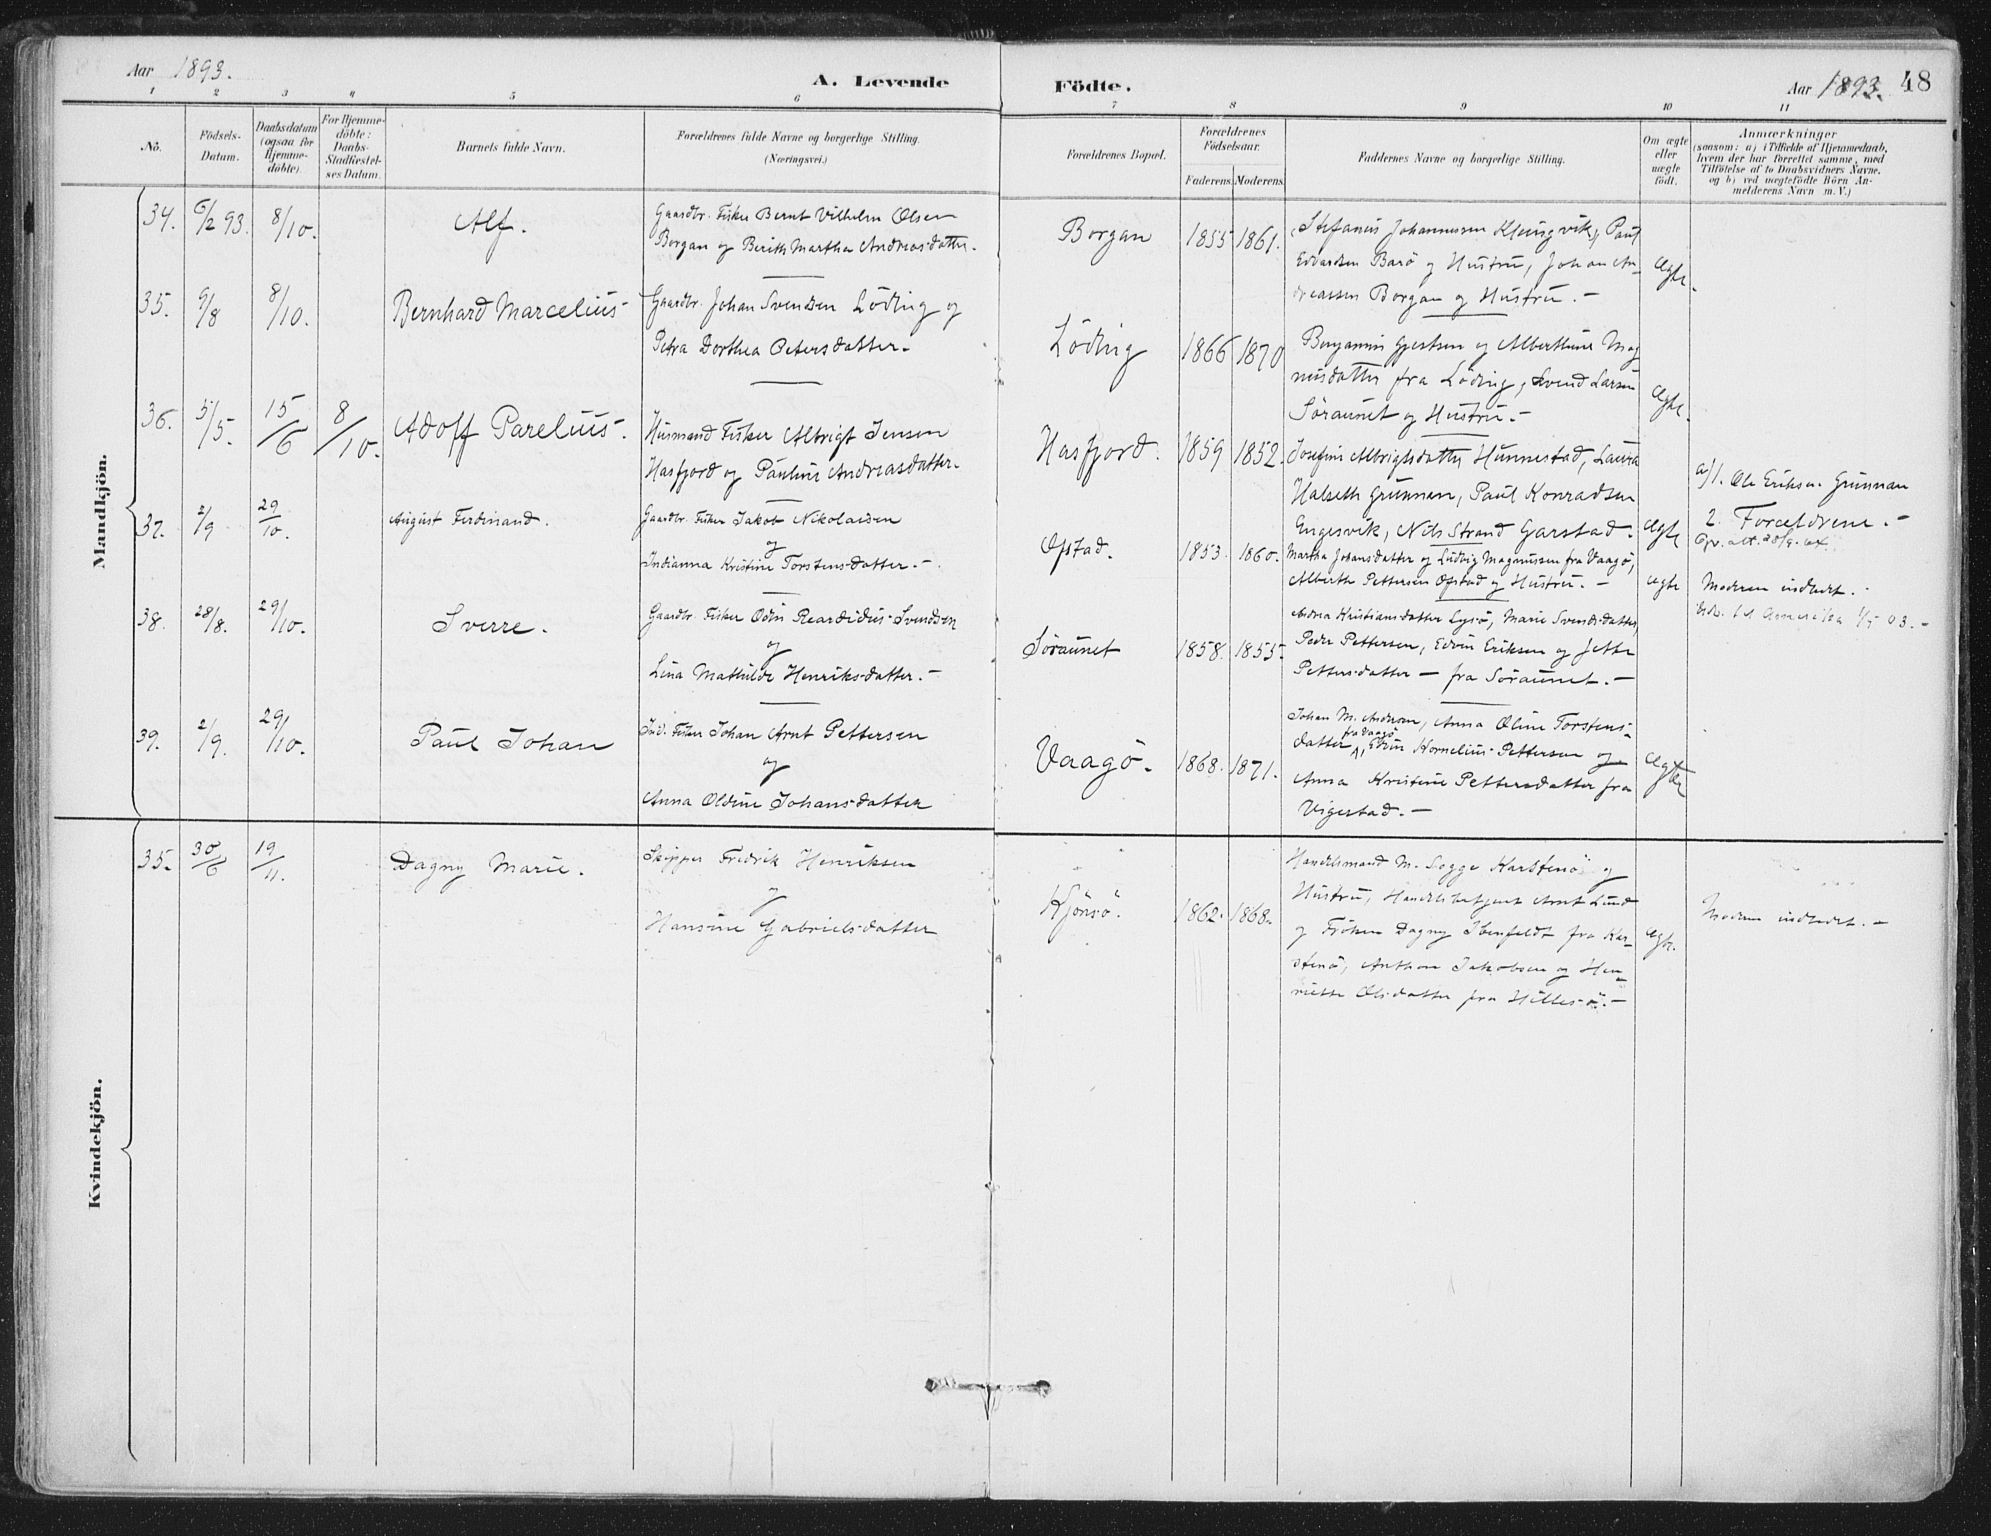 Aar 1893.
A. Levende
Födte.
Aar 1893.
48
1 2 3 4 5 6 7 8 9 10 11
No.
Födsels-
Datum.
Daabsdatum
(ogsaa for
Hjemme-
döbte).
For Hjemme-
döbte:
Daabs-
Stadfæstel-
ses Datum.
Barnets fulde Navn.
Forældrenes fulde Navne og borgerlige Stilling.
(Næringsvei.)
Forældrenes Bopæl.
Forældrenes
Födselsaar.
Faderens. Moderens.
Faddernes Navne og borgerlige Stilling.
Om ægte
eller
uægte
födt.
Anmærkninger
(saasom: a) i Tilfælde af Hjemmedaab,
hvem der har forrettet samme, med
Tilföielse af to Daabsvidners Navne,
og b) ved uægtefödte Börn An-
melderens Navn m. V.)
Mandkjön.
34. 6/2 93. 8/10. Alf.
Gaardbr. Fisker Bernt Vilhelm Olsen
Borgan og Berith Martha Andreasdatter.
Borgan 1855 1861.
Stefanus Johannesen Klungvik, Paul
Edvardsen Barö og Hustru, Johan An-
dreassen Borgan og Hustru. -
Ægte.
35. 9/8 8/10. Bernhard Marcelius
Gaardbr. Johan Svendsen Löding og
Petra Dorthea Petersdatter.
Löding 1866 1870
Benjamin Gjertsen og Alberthine Mag
nusdatter fra Löding, Svend Larsen
Söraunet og Hustru. -
Ægte.
36. 5/5. 15/6 8/10. Adolf Parelius.
Husmand Fisker Albrigt Jensen
Hasfjord og Pauline Andreasdatter.
Hasfjord. 1859 1852.
Josefine Albrigtsdatter Hunnestad, Laura
Halseth Grinnan, Paul Konradsen
Engesvik, Nils Strand Garstad.
Ægte
a/1. Ole Eriksen Grinnan
2. Forældrene. -
37. 2/9 29/10. August Ferdinand.
Gaardbr. Fisker Jakob Nikolaisen
og
Indianna Kristine Torstensdatter. -
Opstad. 1853. 1860.
Martha Johansdatter og Ludvig Magnussen fra Vaagö,
Alberth Pettersen Opstad og Hustru. -
ægte
Moderen indledt.
38. 28/8. 29/10. Sverre.
Gaardbr. Fisker Odin Reardidus Svendsen
og
Lina Mathilde Henriksdatter. -
Söraunet 1858. 1855.
Andrea Kristiansdatter Lysö, Marie Svendsdatter,
Peder Pettersen, Edvin Eriksen og Jette
Pettersdatter - fra Söraunet. -
til Amerika 1/5 03. -
39. 2/9. 29/10. Paul Johan
Ind. Fisker Johan Arnt Pettersen
og
Anna Oldine Johansdatter
Vaagö. 1868. 1871.
Johan M. Andersen, Anna Oline Torstens-
datter fra Vaagö, Edvin Kornelius Pettersen og
Anna Kristine Pettersdatter fra
Vigestad. -
Ægte
Kvindekjön.
35. 30/6 19/11. Dagny Marie.
Skipper Fredrik Henriksen
og
Hansine Gabrielsdatter
Kjönsö. 1862. 1868.
Handelsmand M. Sogge Karstenö og
Hustru, Handelsbetjent Arnt Lund
og Fröken Dagny Ibenfeldt fra Kar-
stenö, Anthon Jakobsen og Hen-
riette Olsdatter fra Hillesö. -
Ægte.
Moderen indledet. -